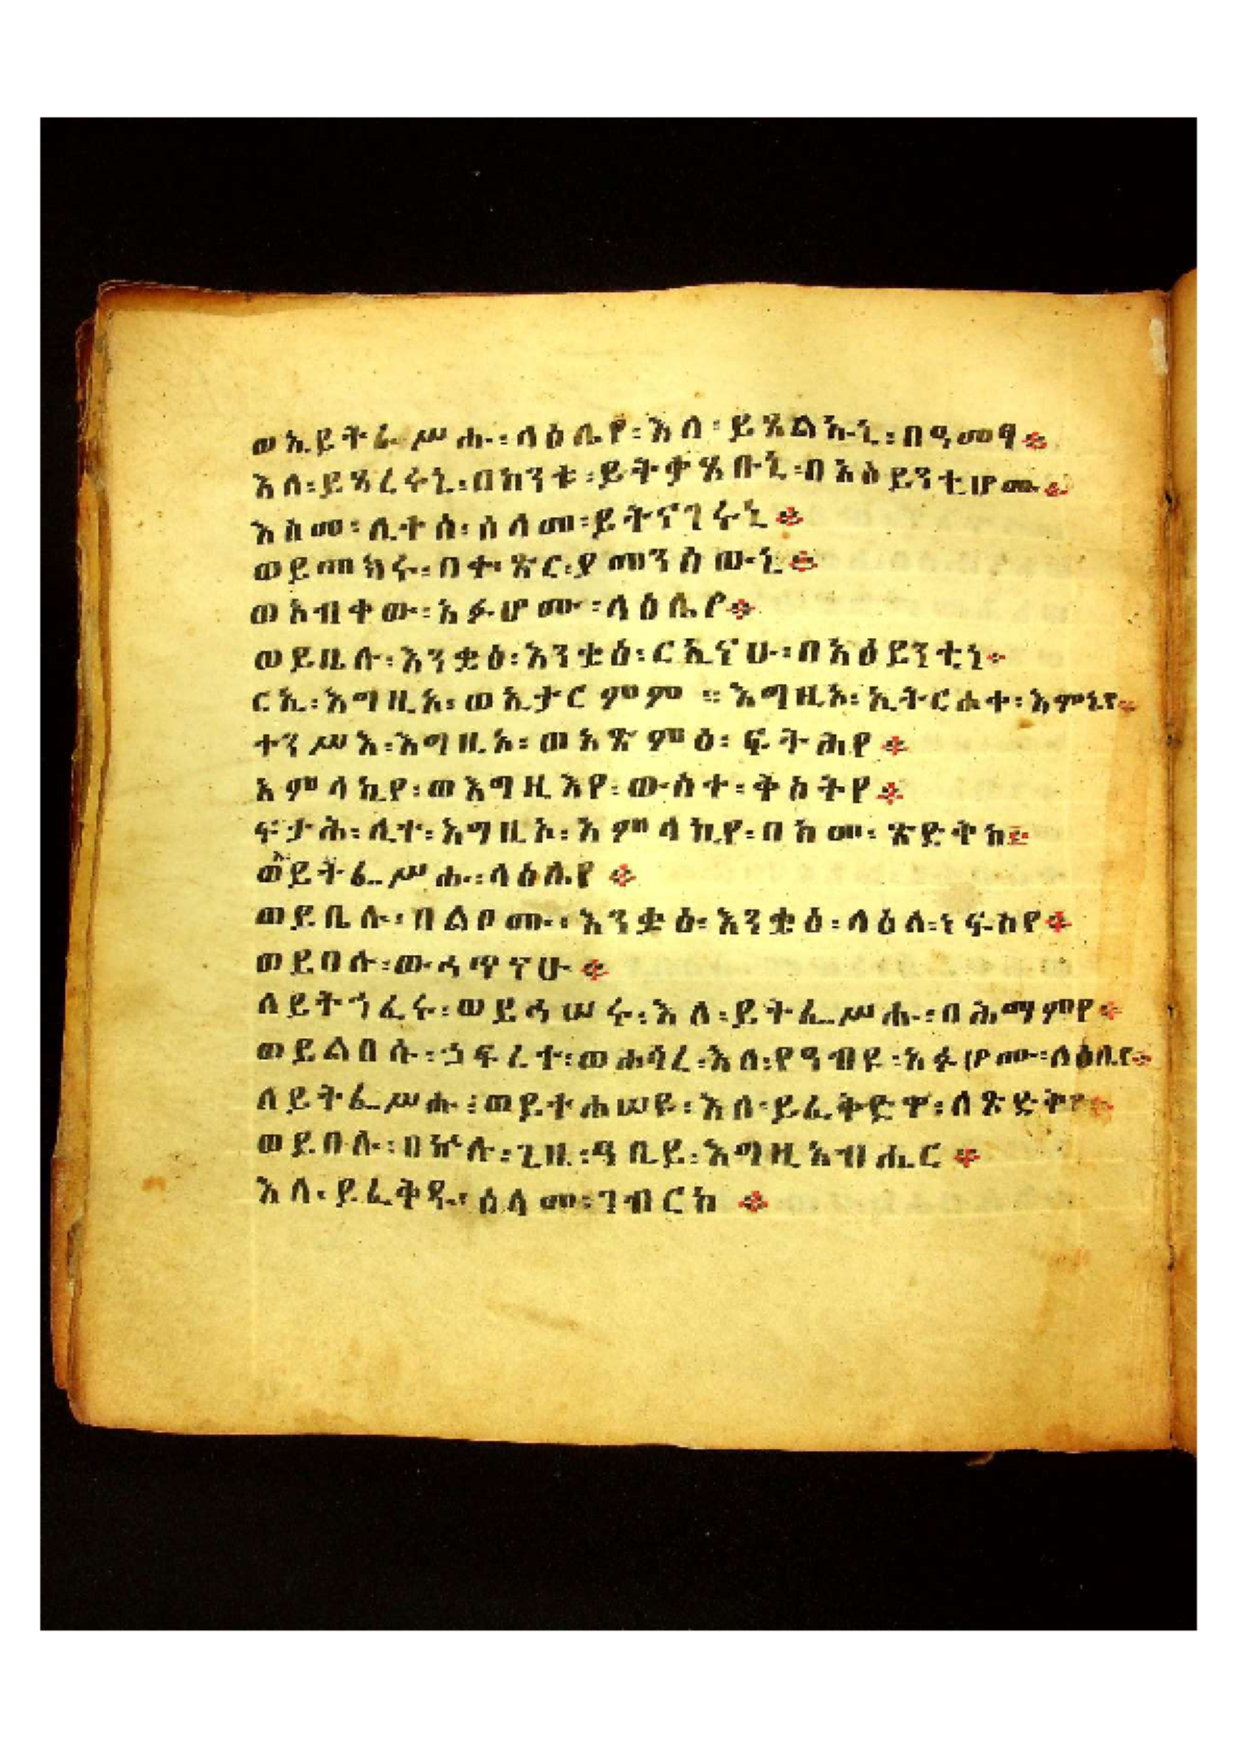 ወኢይትፌሥሑ፡ላዕሌየ፡እለ፡ይጼልኡኒ፡በዓመፃ፨
እለ፡ይጻረሩኒ፡በከንቱ፡ይትቃጸቡኒ፡በአዕይንቲሆሙ፨
እስመ፡ሊተሰ፡ሰላመ፡ይትናገሩኒ፨
ወይመክሩ፡በቀጽር፡ያመንስዉኒ፨
ወአብቀው፡አፉሆሙ፡ላዕሌየ፨
ወይቤሉ፡እንቋዕ፡እንቋዕ፡ርኢናሁ፡በአዕይንቲነ፨
ርኢ፡እግዚኦ፡ወኢታርምም ። እግዚኦ፡ኢትርሐቀ፡እምኔየ፨
ተንሥእ፡እግዚኦ፡ወአጽምዕ፡ፍትሕየ፨
አምላኪየ፡ወእግዚእየ፡ውስተ፡ቅስትየ፨
ፍታሕ፡ሊተ፡እግዚኦ፡አምላኪየ፡በከመ፡ጽድቅከ፨
ወኢይትፌሥሑ፡ላዕሌየ፨
ወይቤሉ፡በልቦሙ፡እንቋዕ፡እንቋዕ፡ላዕለ፡ነፍስየ፨
ወይበሉ፡ውኅጥናሁ፨
ለይትኀፈሩ፡ወይኅሠሩ፡እለ፡ይትፌሥሑ፡በሕማምየ፨
ወይልበሱ፡ኃፍረተ፡ወሐሳረ፡እለ፡የዓብዩ፡አፉሆሙ፡ላዕሌየ፨
ለይትፌሥሑ፡ወይተሐሠዩ፡እለ፡ይፈቅድዋ፡ለጽድቅየ፨
ወይበሉ፡በኵሉ፡ጊዜ፡ዓቢይ፡እግዚአብሔር፨
እለ፡ይፈቅዱ፡ሰላመ፡ገብርከ፨